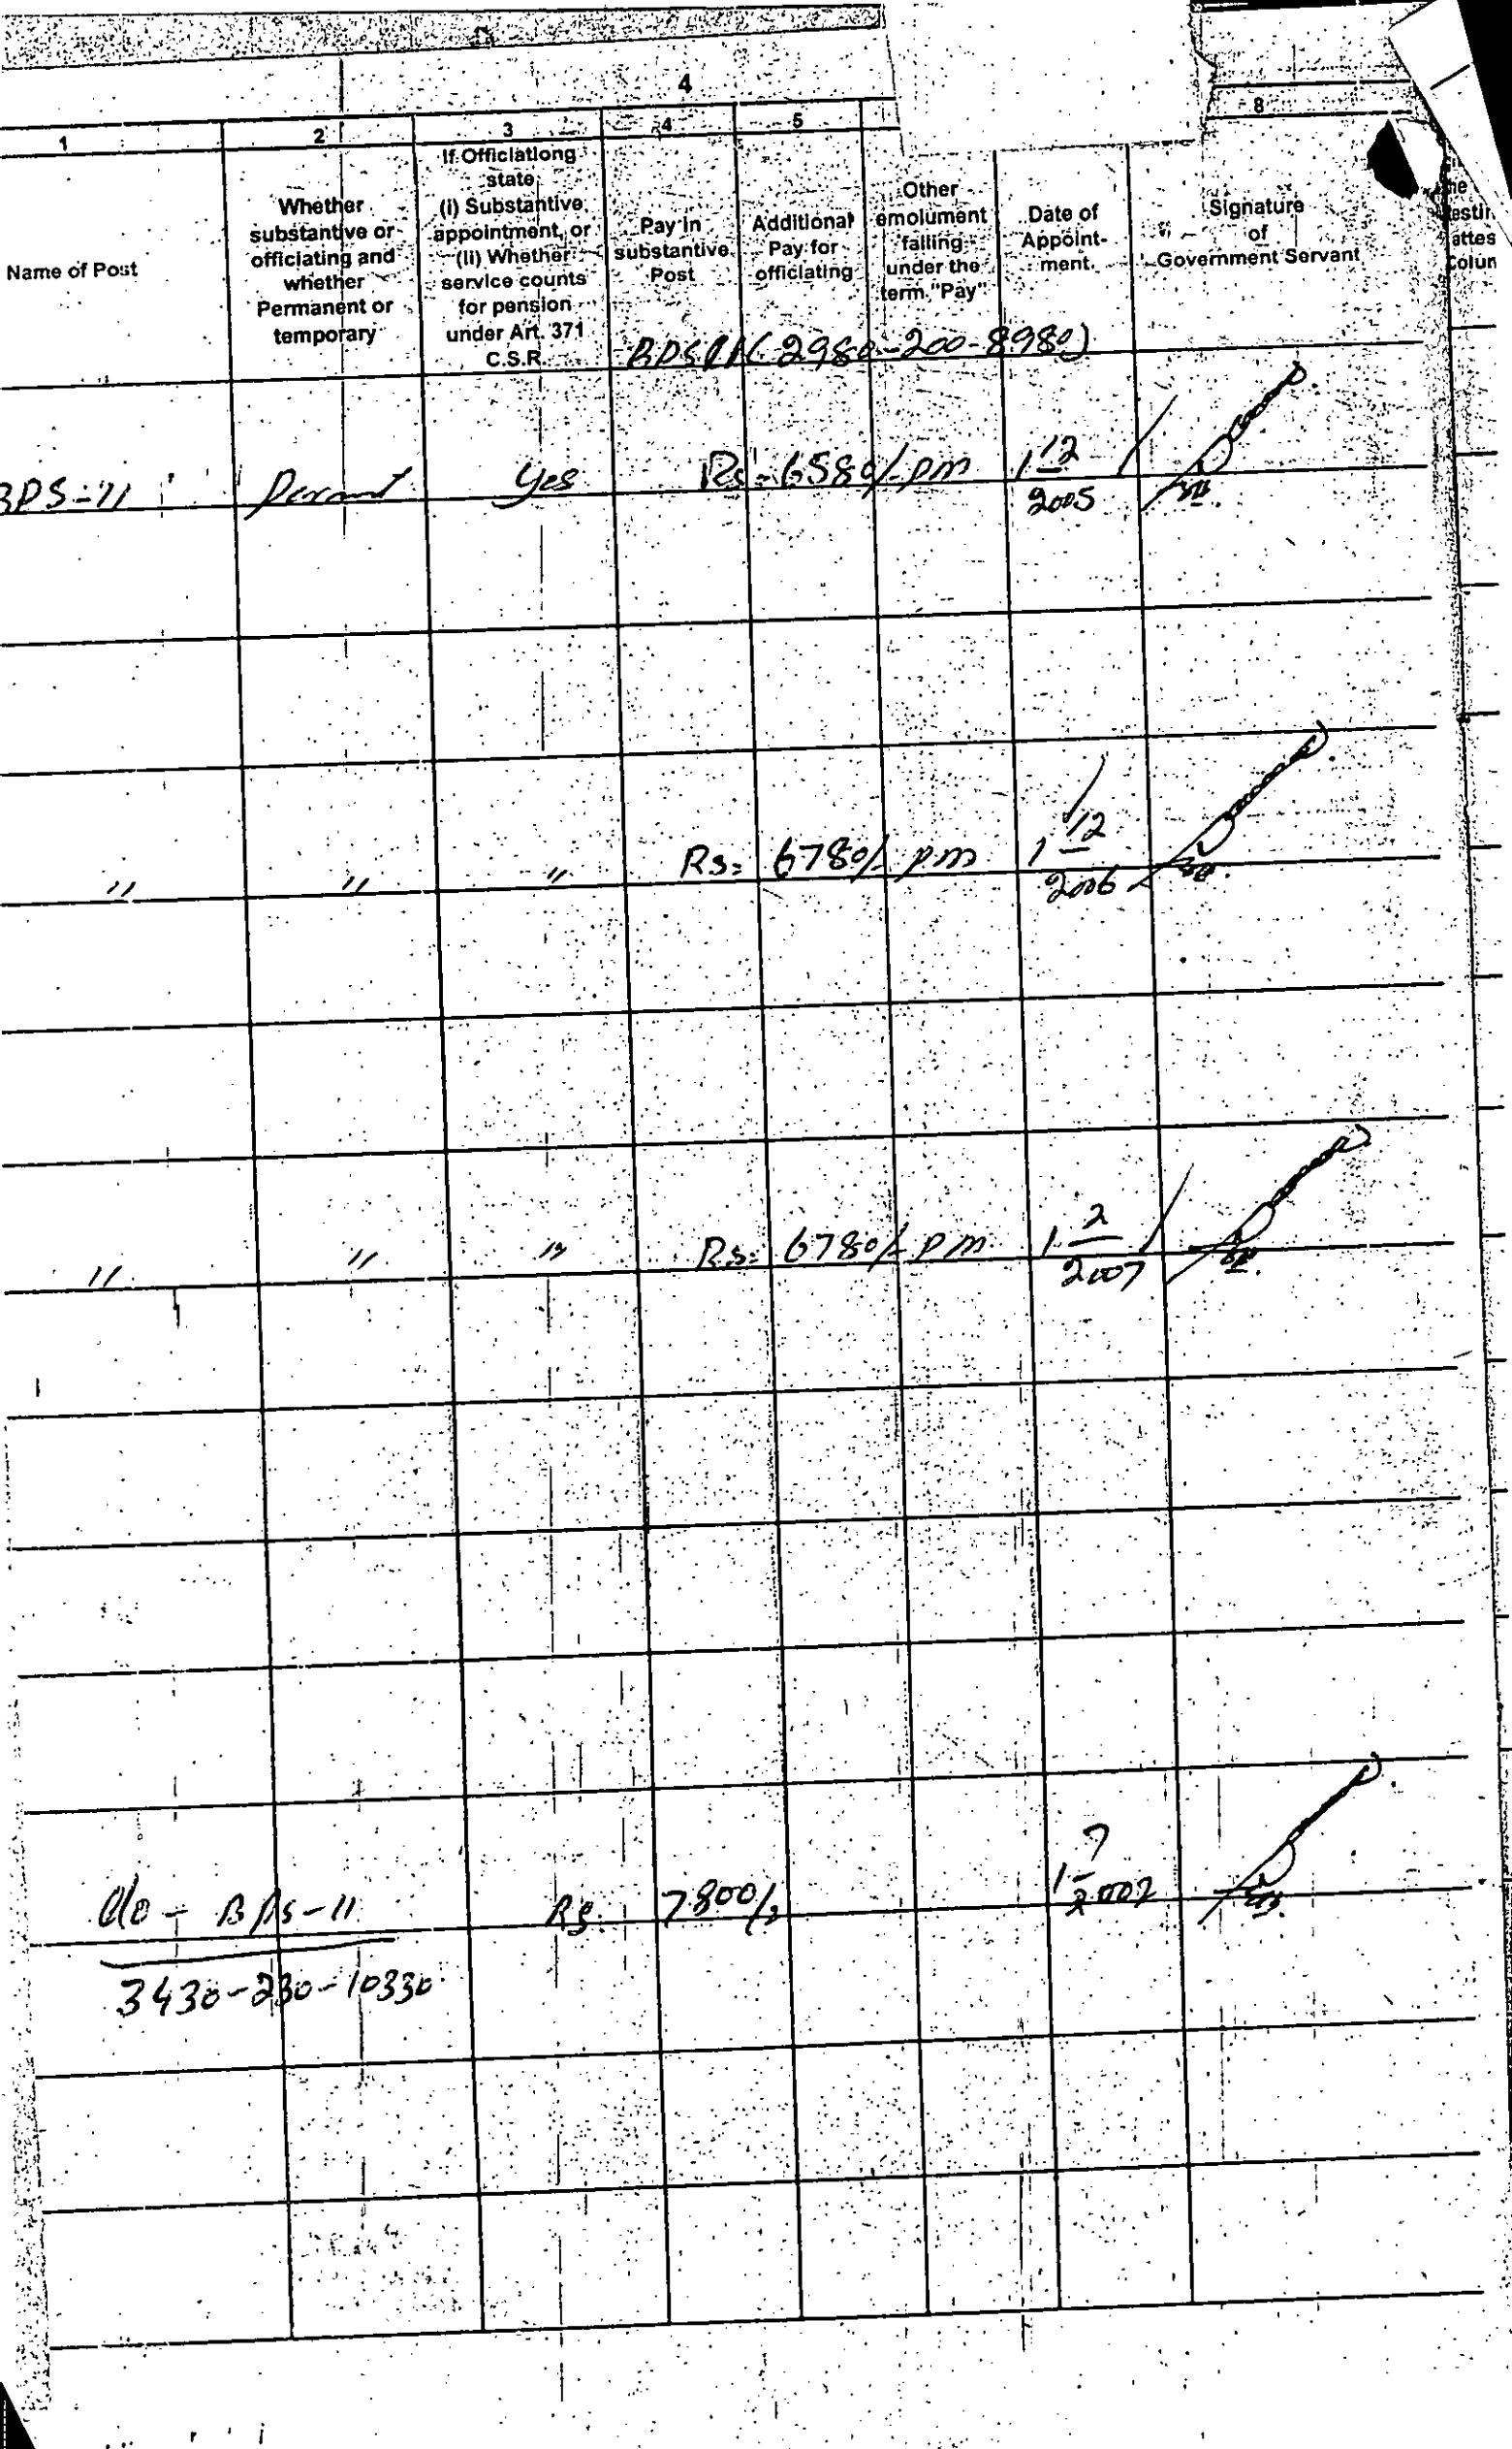 4
1 2 3 4 5 8
Name of Post
Whether
substantive or
officiating and
whether
Permanent or
temporary
If Officiationg
state
(i) Substantive
appointment, or
(ii) Whether
service counts
for pension
under Art. 371
C.S.R.
Pay in
substantive
Post
Additional
Pay for
officiating
Other
emolument
falling
under the
term "Pay"
Date of
Appoint-
ment.
Signature
of
Government Servant
attes
BPS 11 (2980-200-8980)
BPS-11 Yes Rs = 6580/- pm 1 12/2005
" " " Rs = 6780/- pm 1 12/2006
" " " Rs = 6780/- pm 1 2/2007
do - BPS-11 Rs. 7800/- 1 7/2007
3430-230-10330